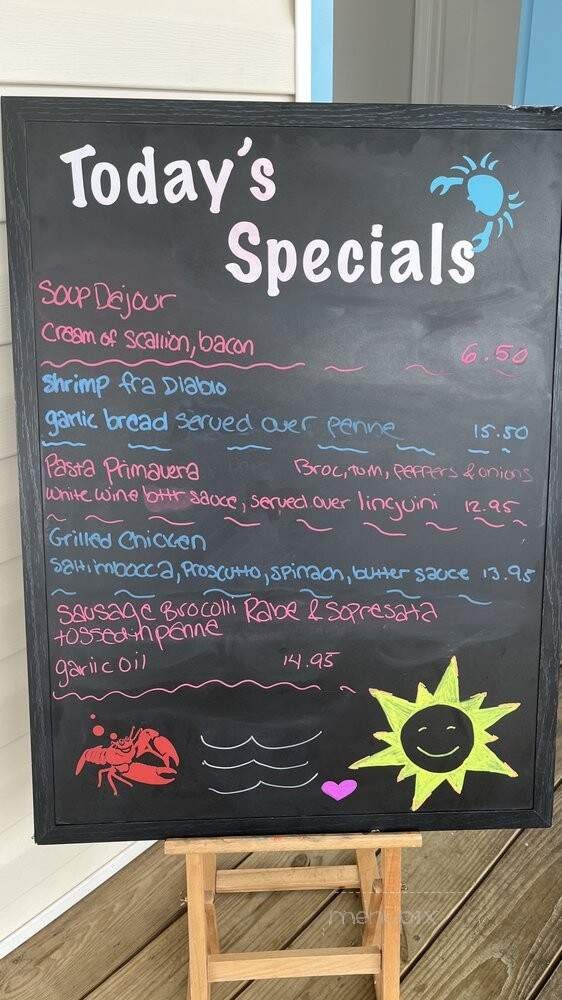 Today's
Specials
Soup Dejour
Cream of Scallion, bacon 6.50
shrimp fra Diablo
garlic bread served over penne 15.50
Pasta Primavera Broc, tom, peppers & onions
white wine bttr sauce, served over linguini 12.95
Grilled Chicken
Saltimbocca, Proscutto, spinach, butter sauce 13.95
Sausage Brocolli Rabe & Sopresata
tossed in penne
garlic oil 14.95
menupix